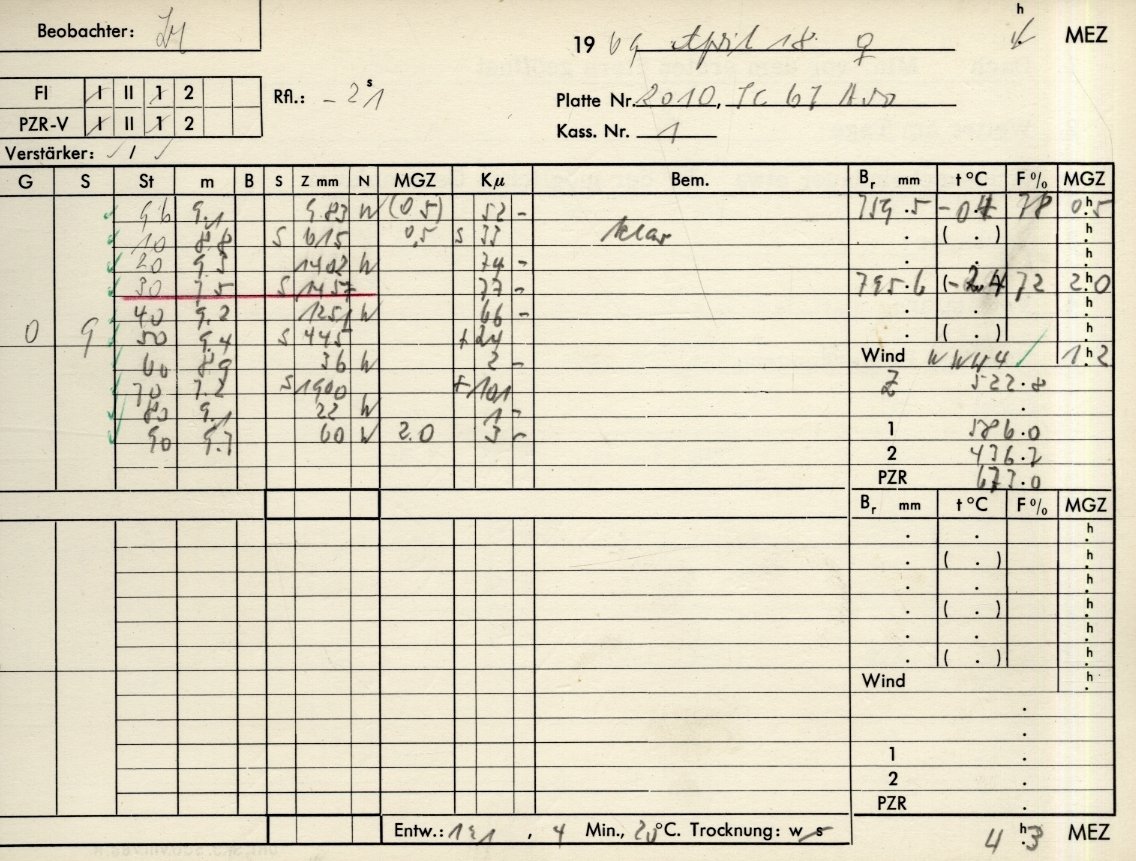 Beobachter:
h
19 69 April 18. ♀ MEZ
FI I II 1 2 Rfl.: - 21 s
Platte Nr. 2010,
PZR-V I II 1 2
Kass. Nr. 1
Verstärker: 1
G S St m B S Z mm N MGZ Kμ Bem. Br mm t °C F % MGZ
96 9.1 983 W (0.5) 52 - 759.5 -0.4 78 0.5 h
10 8.8 S 615 0,5 S 33 klar . ( . ) h
20 9.3 1402 W 74 - . . h
30 7.5 S 1457 77 - 795.6 (-2.4 72 2.0 h
40 9.2 1251 W 66 - . . h
0 9 50 9.4 S 445 +24 . ( . ) h
60 8.9 36 W 2 - Wind WW44 1.2 h
70 7.2 S 1900 +101 Z 522.8
80 9.1 22 W 1 - .
90 9.7 60 W 2.0 3 - 1 586.0
2 436.2
PZR 673.0
Br mm t °C F % MGZ
. . h
. ( . ) h
. . h
. ( . ) h
. . h
. ( . ) h
Wind h
.
.
1 .
2 .
PZR .
Entw.: 1:1, 4 Min., 20 °C. Trocknung: w s 4 h .3 MEZ